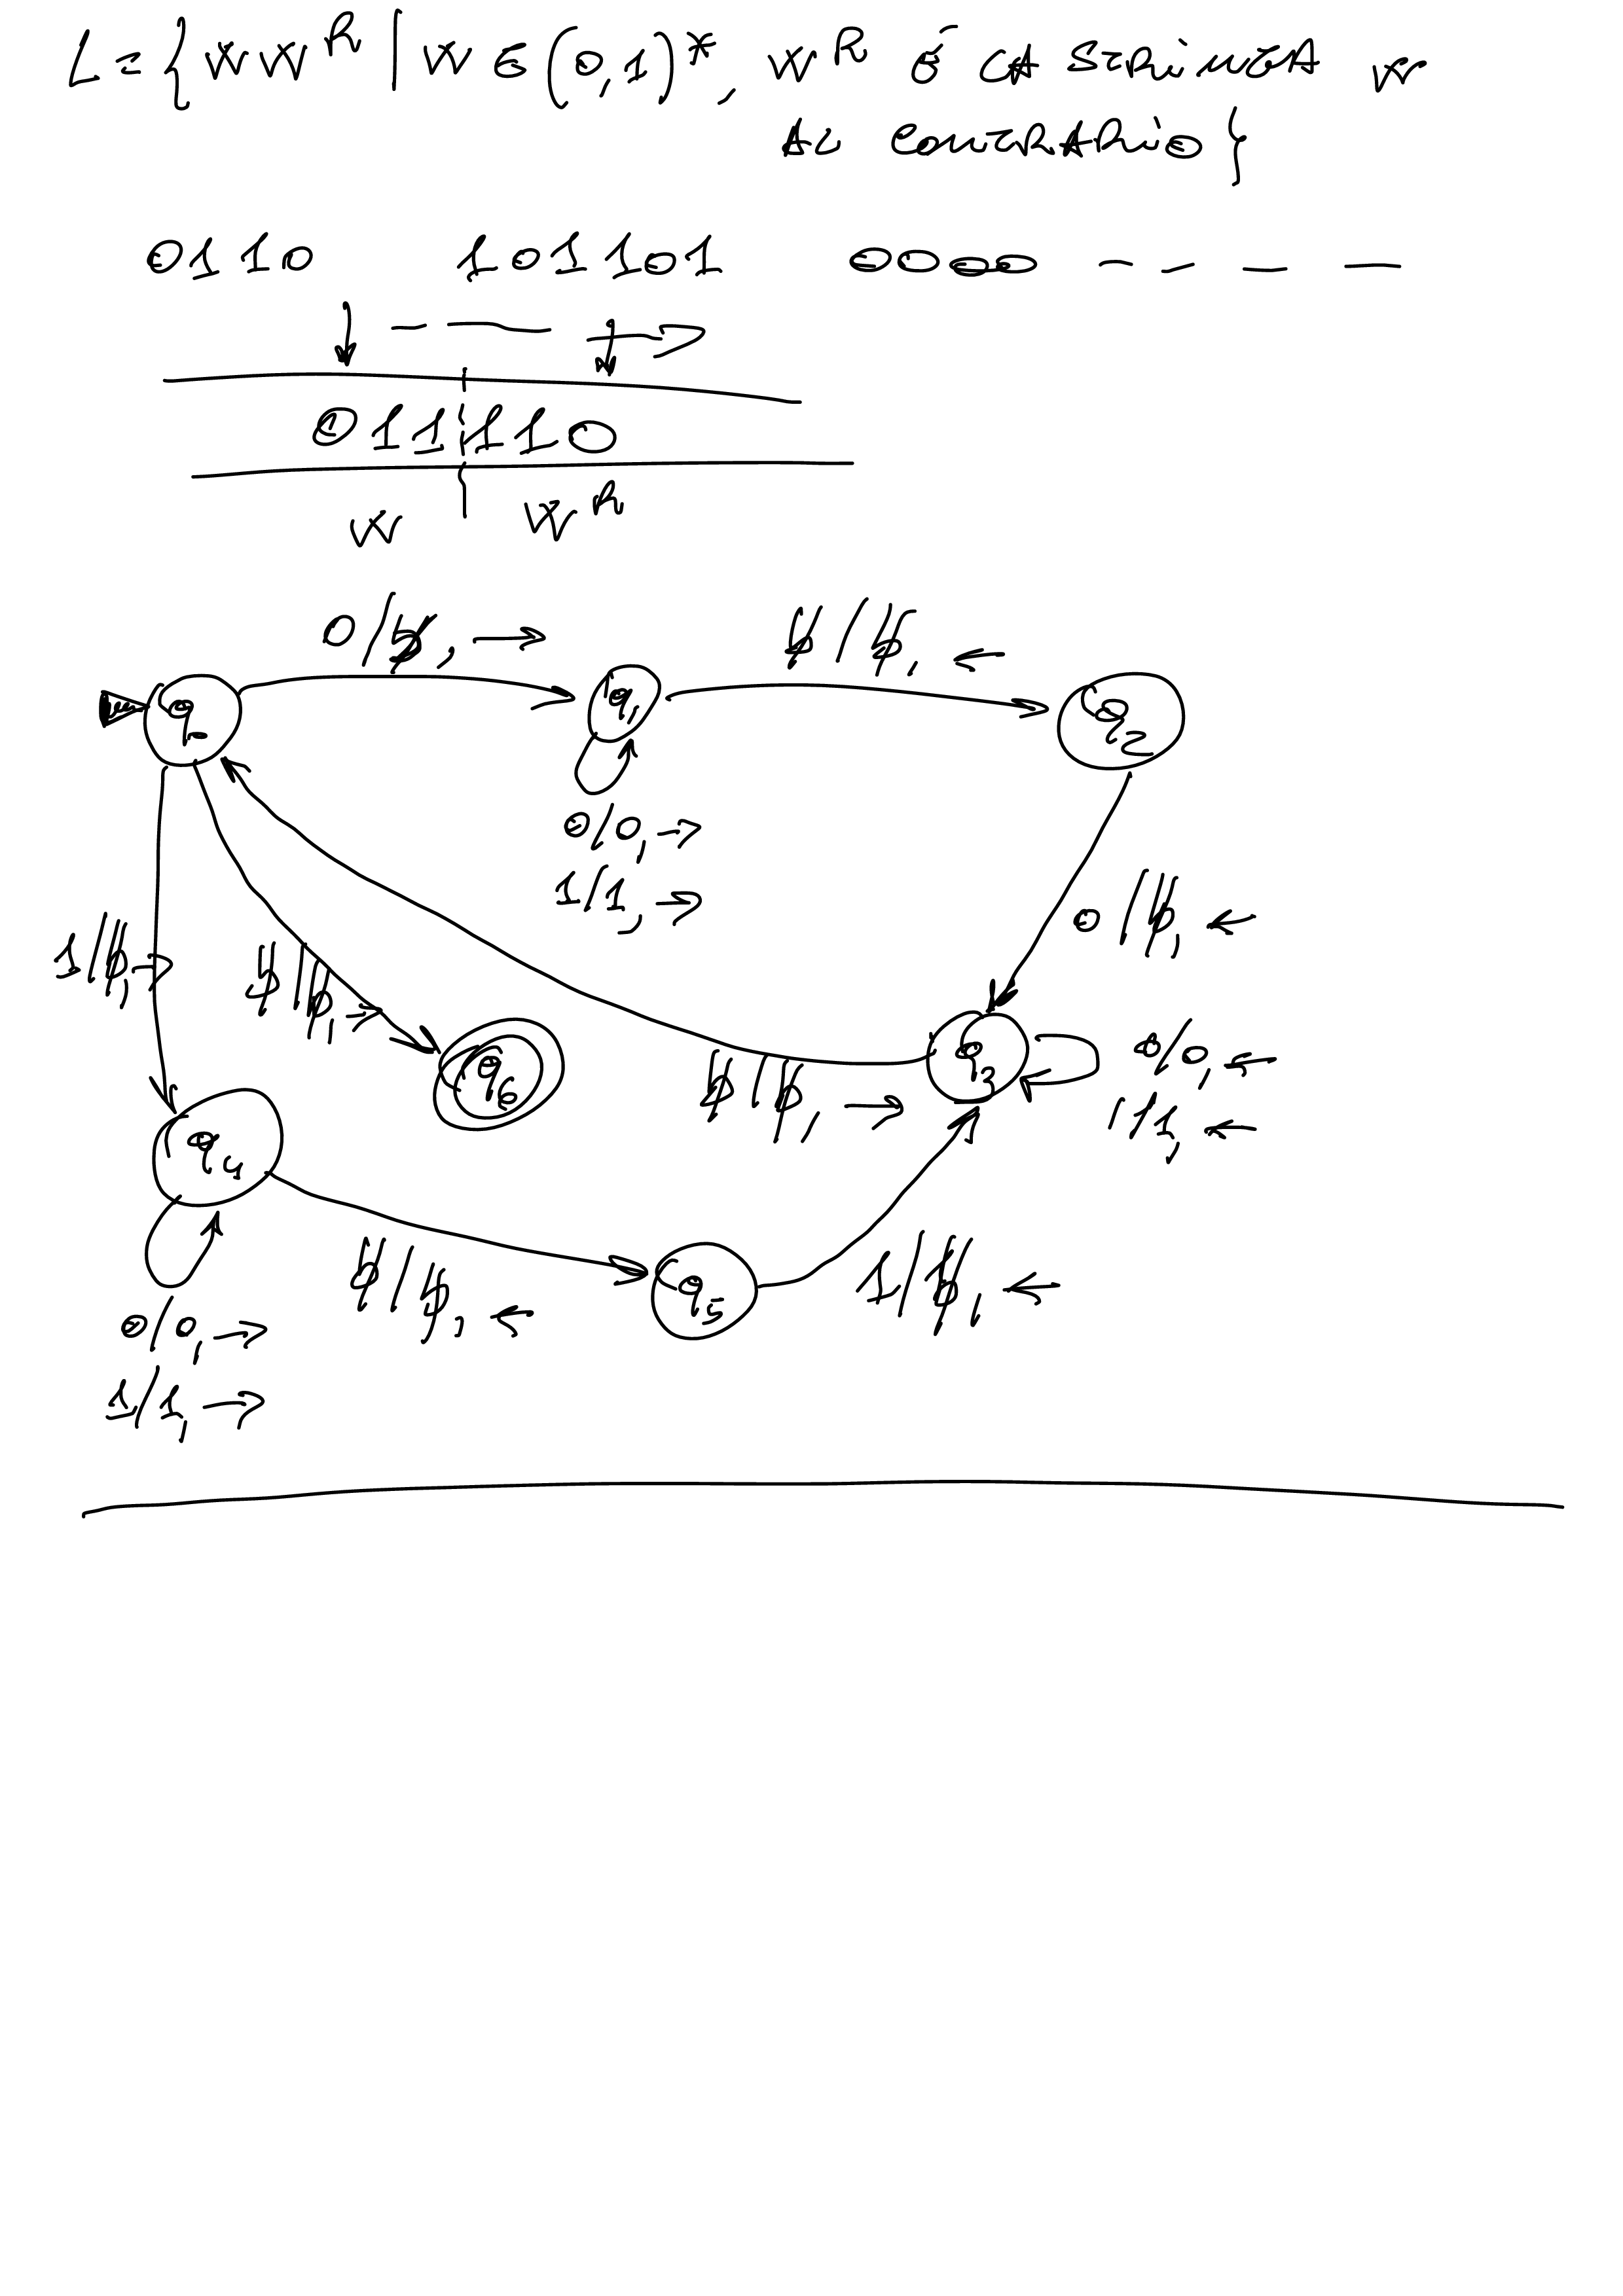 L = { W W^R | W ∈ (0,1)*, W^R É LA STRINGA W
AL CONTRARIO }
0110 101101 0000 - - - -
011110
W W^R
0/ƀ, → ƀ/ƀ, ←
q0 q1 q2
0/0, →
1/1, →
0/ƀ, ←
1/ƀ, → ƀ/ƀ, →
q6 q3 0/0, ←
ƀ/ƀ, → 1/1, ←
q4
q5 1/ƀ, ←
ƀ/ƀ, ←
0/0, →
1/1, →